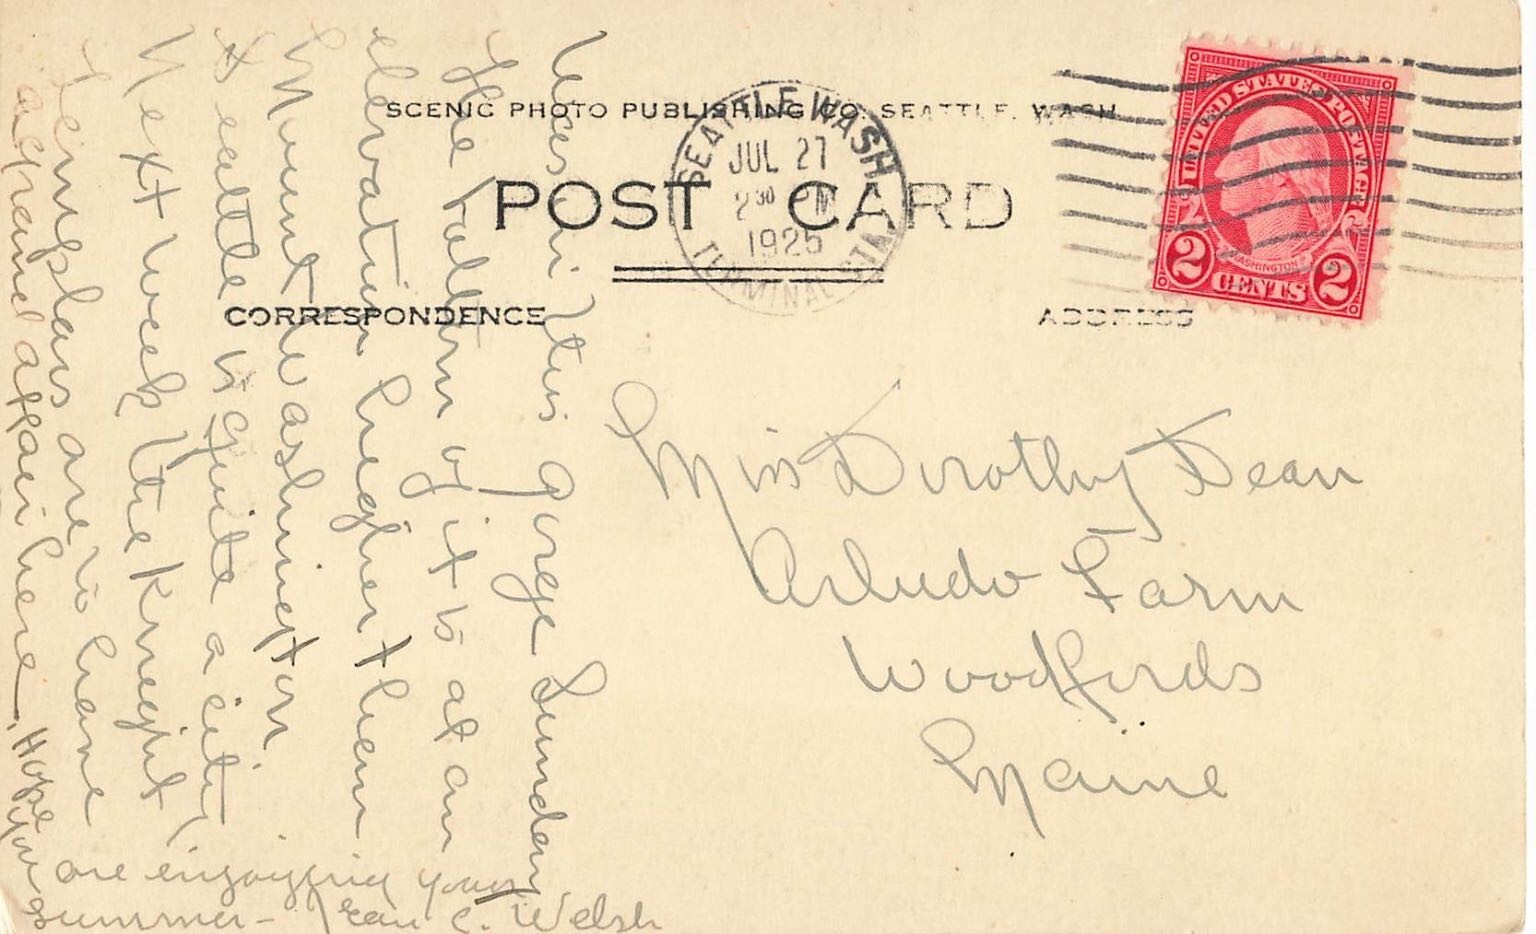 SCENIC PHOTO PUBLISHING CO. SEATTLE, WASH.
POST CARD
CORRESPONDENCE
ADDRESS
SEATTLE, WASH.
JUL 27
2 30 PM
1925
TERMINAL STA.
UNITED STATES POSTAGE
WASHINGTON
2 CENTS 2
Was in this gorge Sunday
The bottom of it is at an
elevation higher than
Mount Washington
Seattle is quite a city,
Next week the Knight
Templars are to have
a grand affair here. Hope you
are enjoying your
summer - Jean C. Welsh
Miss Dorothy Dean
Farm
Woodfords
Maine